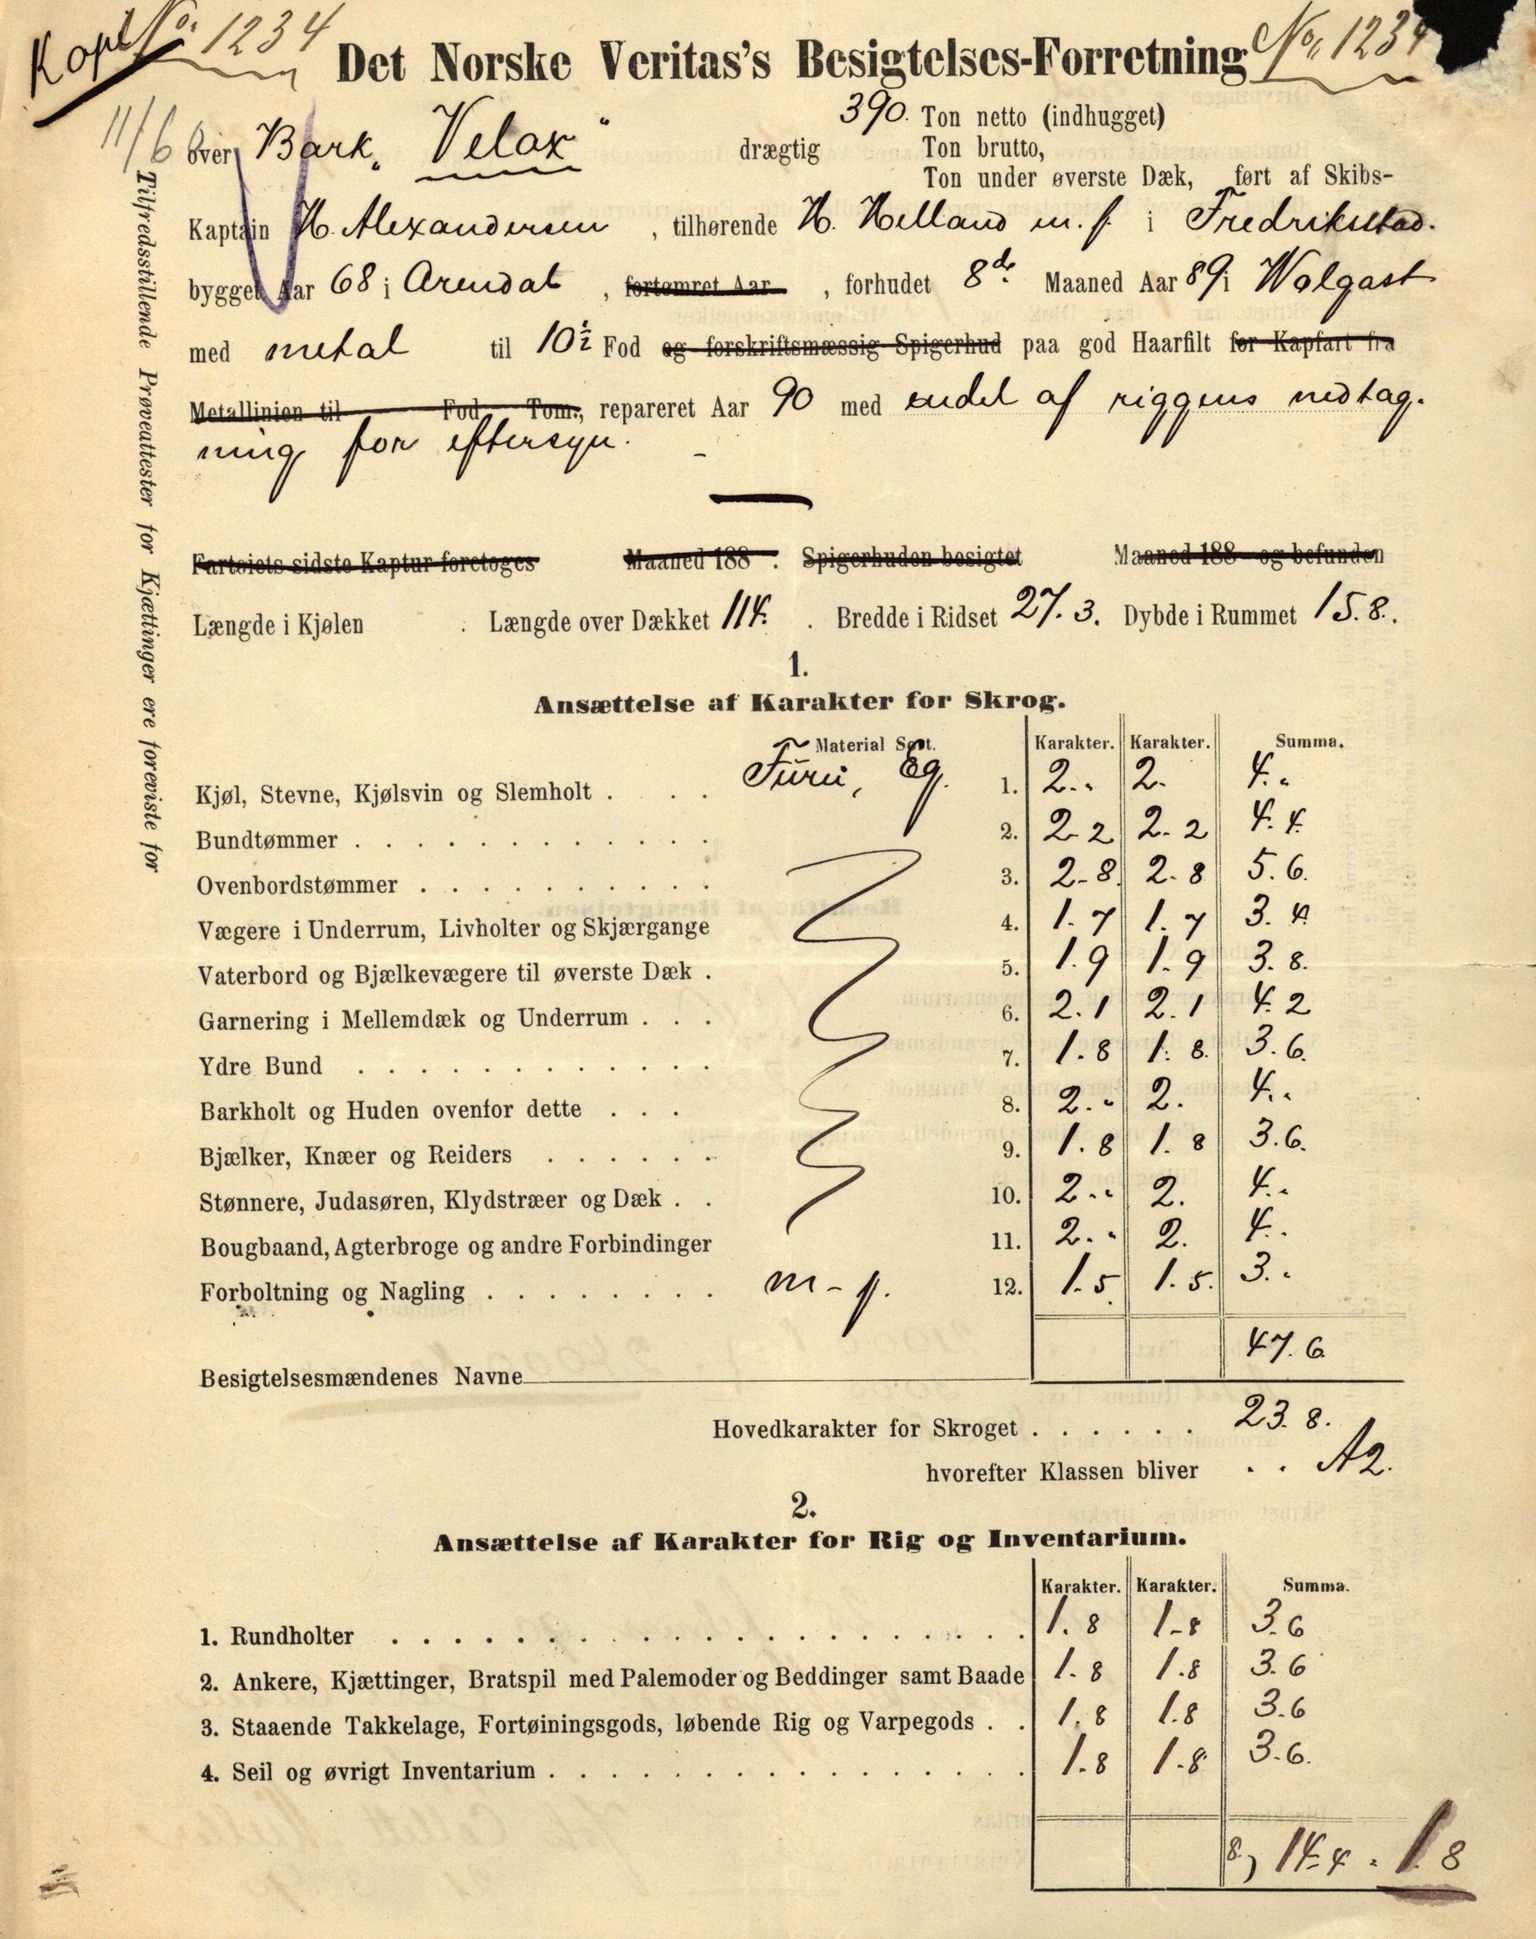 Kapt No. 1234
Det Norske Veritas's Besigtelses-Forretning
No. 1234
11/6
over Bark „Velox“ drægtig 390. Ton netto (indhugget)
Ton brutto,
Ton under øverste Dæk, ført af Skibs-
Kaptain H. Alexandersen , tilhørende H. Helland m. f. i Fredriksstad.
bygget Aar 68 i Arendal , fortømret Aar , forhudet 8de Maaned Aar 89 i Wolgast
med metal til 10½ Fod og forskriftsmæssig Spigerhud paa god Haarfilt for Kapfart fra
Metallinien til Fod Tom., repareret Aar 90 med endel af riggens nedtag-
ning for eftersyn. -
Fartøiets sidste Kaptur foretoges Maaned 188 . Spigerhuden besigtet Maaned 188 og befunden
Længde i Kjølen . Længde over Dækket 114. . Bredde i Ridset 27.3. Dybde i Rummet 15.8..
1.
Ansættelse af Karakter for Skrog.
Material Sort. Karakter. Karakter. Summa.
Kjøl, Stevne, Kjølsvin og Slemholt . . . Furu, Eg. 1. 2.. 2. 4..
Bundtømmer . . . . . . . . . . . . 2. 2.2 2.2 4.4.
Ovenbordstømmer . . . . . . . . . . 3. 2.8. 2.8 5.6.
Vægere i Underrum, Livholter og Skjærgange 4. 1.7 1.7 3.4.
Vaterbord og Bjælkevægere til øverste Dæk . 5. 1.9 1.9 3.8.
Garnering i Mellemdæk og Underrum . . . 6. 2.1 2.1 4.2
Ydre Bund . . . . . . . . . . . . 7. 1.8 1.8. 3.6.
Barkholt og Huden ovenfor dette . . . 8. 2.. 2. 4..
Bjælker, Knæer og Reiders . . . . . . 9. 1.8 1.8 3.6.
Stønnere, Judasøren, Klydstræer og Dæk . . 10. 2.. 2. 4..
Bougbaand, Agterbroge og andre Forbindinger 11. 2.. 2. 4..
Forboltning og Nagling . . . . . . . . m - f. 12. 1.5. 1.5. 3..
47.6
Besigtelsesmændenes Navne
Hovedkarakter for Skroget . . . . . . 23.8.
hvorefter Klassen bliver . . A2.
2.
Ansættelse af Karakter for Rig og Inventarium.
Karakter. Karakter. Summa.
1. Rundholter . . . . . . . . . . . . . . . . . . . . . 1.8 1.8 3.6
2. Ankere, Kjættinger, Bratspil med Palemoder og Beddinger samt Baade 1.8 1.8 3.6
3. Staaende Takkelage, Fortøiningsgods, løbende Rig og Varpegods . . 1.8 1.8 3.6
4. Seil og øvrigt Inventarium . . . . . . . . . . . . . . . . 1.8 1.8 3.6.
8) 14.4 = 1.8
Tilfredsstillende Prøveattester for Kjættinger ere foreviste for